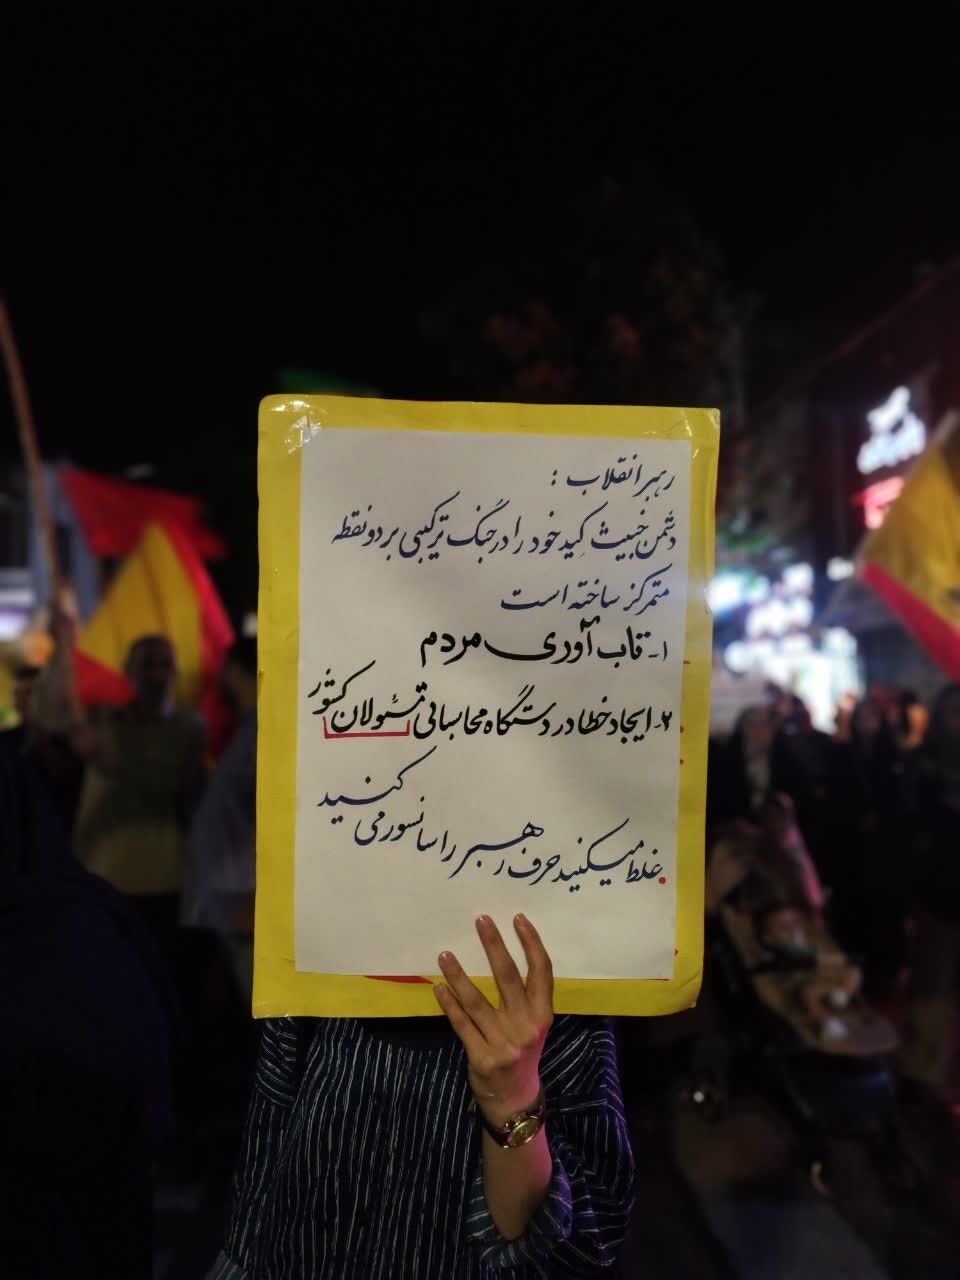 رهبر انقلاب :
دشمن خبیث کید خود را در جنگ ترکیبی بر دو نقطه
متمرکز ساخته است
۱- تاب آوری مردم
۲- ایجاد خطا در دستگاه محاسباتی مسئولان کشور
غلط میکنید حرف رهبر را سانسور می کنید